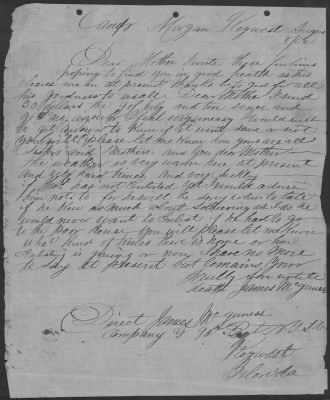 Camp Morgan Keywest August
1864
Dear Mother I write these few lines
hoping to find you in good health as this
leaves me in at present thanks be to God for all
his goodness to us all Dear Mother I send
30 Dollars the of July and ten sence and
got no answer I feel very uneasy I would wish
to get answer to know if it went safe or not
you will Please let me know how you are all
Sister and Brothers and you Dear Mother
the weather is very warm here at present
and very hard times and very sickly
if has not Enlisted yet I would advise
him not to for he would be sorry when to late
if he knew as much about Soldiering as I do he
would never want to Enlist if he had to go
to the Poor House you will please let me know
what kind of times there is home or how
Enlisting is going on now I have no more
to say at present but remains Your
son until
death James McGuiness
Direct James McGuiness
Company G 90th Regt N.Y.S.V.
Keywest
Florida